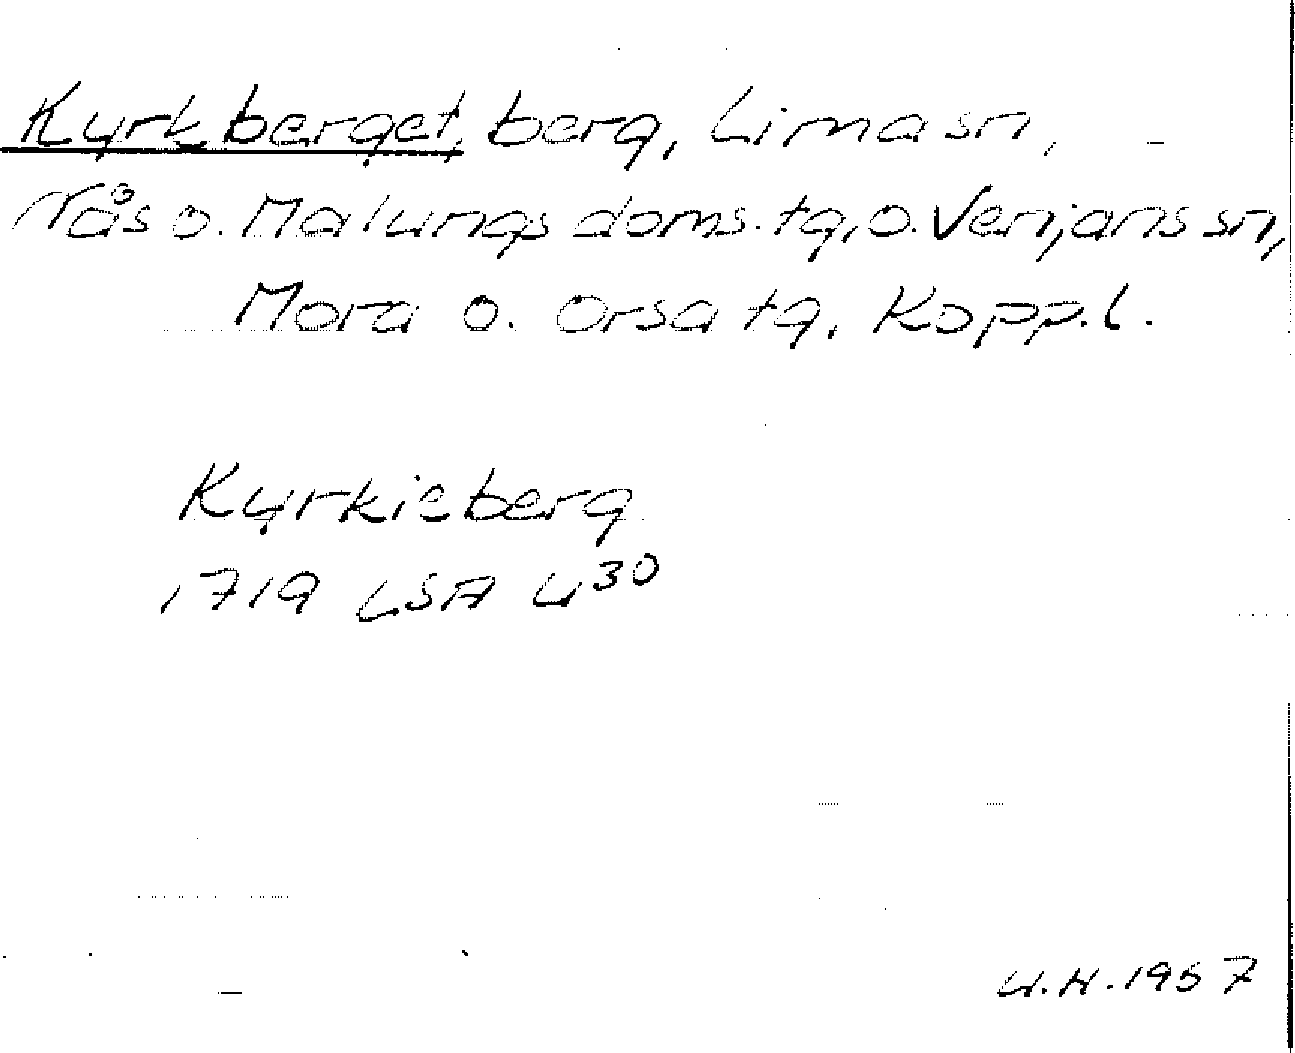 Kyrkberget, berg, Lima sn,
Nås o. Malungs doms. tg, o. Venjans sn,
Mora o. Orsa tg, Kopp. l.
Kyrkieberg
1719 LSA U³⁰
U.H. 1957